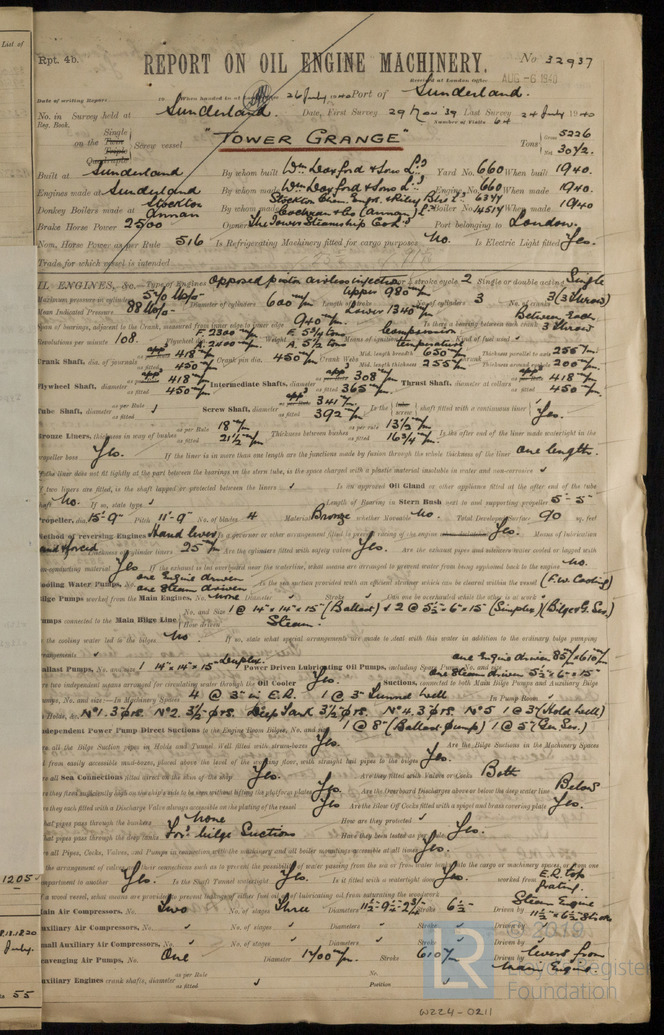 List of
Rpt. 4b.
REPORT ON OIL ENGINE MACHINERY.
No 32937
Received at London Office AUG -6 1940
Date of writing Report 26 July 1940 Port of Sunderland.
No. in Survey held at Sunderland Date, First Survey 29 Nov 39 Last Survey 24 July 1940
Reg. Book. Number of Visits 64
Single on the Screw vessel "TOWER GRANGE" Tons Gross 5226 Net 3042
Built at Sunderland By whom built Wm Doxford & Sons Ld Yard No. 660 When built 1940.
Engines made at Sunderland By whom made Wm Doxford & Sons Ld Engine No. 660 When made 1940.
Donkey Boilers made at Stockton Annan By whom made Stockton Chem. Engrs & Riley Blrs Ld Cochran & Co (Annan) Ld Boiler No. 6344 14514 When made 1940
Brake Horse Power 2500 Owners The Tower Steamship Co Ld Port belonging to London.
Nom. Horse Power as per Rule 516 Is Refrigerating Machinery fitted for cargo purposes No. Is Electric Light fitted Yes.
Trade for which vessel is intended
OIL ENGINES, &c. Type of Engines Opposed piston airless injection 2 or 4 stroke cycle 2 Single or double acting Single
Maximum pressure in cylinders 570 lbs Diameter of cylinders 600 m/m Length of stroke Upper 980 m/m Lower 1340 m/m No. of cylinders 3 No. of cranks 3 (3 throw)
Mean Indicated Pressure 88 lbs
Span of bearings, adjacent to the Crank, measured from inner edge to inner edge 940 m/m Is there a bearing between each crank Between Each 3 throw
Revolutions per minute 108. Flywheel dia. F. 2300 m/m A. 2400 m/m Weight F. 5 3/4 tons A. 5 1/2 tons Means of ignition Compression temperature Kind of fuel used
Crank Shaft, dia. of journals appd 418 m/m as fitted 450 m/m Crank pin dia. 450 m/m Crank Webs Mid. length breadth 650 m/m Mid. length thickness 255 m/m Thickness parallel to axis 255 m/m Thickness around axis 200 m/m
Flywheel Shaft, diameter appd 418 m/m as fitted 450 m/m Intermediate Shafts, diameter appd 308 m/m as fitted 365 m/m Thrust Shaft, diameter at collars appd 418 m/m as fitted 450 m/m
Tube Shaft, diameter as per Rule as fitted Screw Shaft, diameter appd 341 m/m as fitted 392 m/m Is the screw shaft fitted with a continuous liner Yes.
Bronze Liners, thickness in way of bushes as per Rule 18 m/m as fitted 21 1/2 m/m Thickness between bushes as per rule 13 1/2 m/m as fitted 16 3/4 m/m Is the after end of the liner made watertight in the
propeller boss Yes. If the liner is in more than one length are the junctions made by fusion through the whole thickness of the liner one length.
If the liner does not fit tightly at the part between the bearings in the stern tube, is the space charged with a plastic material insoluble in water and non-corrosive
If two liners are fitted, is the shaft lapped or protected between the liners Is an approved Oil Gland or other appliance fitted at the after end of the tube
shaft No. If so, state type Length of Bearing in Stern Bush next to and supporting propeller 5'-5"
Propeller, dia. 15'-9" Pitch 11'-9" No. of blades 4 Material Bronze whether Moveable No. Total Developed Surface 90 sq. feet
Method of reversing Engines Hand lever Yes. Means of lubrication
and forced Thickness of cylinder liners 25 m/m Are the cylinders fitted with safety valves Yes. Are the exhaust pipes and silencers water cooled or lagged with
non-conducting material Yes If the exhaust is led overboard near the waterline, what means are arranged to prevent water from being syphoned back to the engine No.
Cooling Water Pumps, No. one Engine driven one Steam driven Is the sea suction provided with an efficient strainer which can be cleared within the vessel (F.W. Cooling)
Bilge Pumps worked from the Main Engines, No. None Diameter Stroke Can one be overhauled while the other is at work
Pumps connected to the Main Bilge Line No. and Size 1 @ 14" x 14" x 15" (Ballast) & 2 @ 5 1/2 x 6 x 15" (Simplex)(Bilge & G.Ser) How driven Steam.
Is the cooling water led to the bilges No. If so, state what special arrangements are made to deal with this water in addition to the ordinary bilge pumping
arrangements
Ballast Pumps, No. and size 1 14" x 14" x 15" Duplex. Power Driven Lubricating Oil Pumps, including Spare Pump, No. and size one Engine driven 85 m/m x 610 m/m one Steam driven 5 1/2 x 6 x 15
Are two independent means arranged for circulating water through the Oil Cooler Yes. Suctions, connected to both Main Bilge Pumps and Auxiliary Bilge
Pumps, No. and size:—In Machinery Spaces 4 @ 3" in E.R. 1 @ 3" Tunnel well In Pump Room
In Holds, &c. No 1. 3" P&S. No 2. 3 1/2" P&S. Deep Tank 3 1/2" P&S. No 4. 3" P&S. No 5 1 @ 3" (Hold well)
Independent Power Pump Direct Suctions to the Engine Room Bilges, No. and size 1 @ 8" (Ballast pump) 1 @ 5" (Gen. Ser.)
Are all the Bilge Suction pipes in Holds and Tunnel Well fitted with strum-boxes Yes. Are the Bilge Suctions in the Machinery Spaces
led from easily accessible mud-boxes, placed above the level of the working floor, with straight tail pipes to the bilges Yes.
Are all Sea Connections fitted direct on the skin of the ship Yes. Are they fitted with Valves or Cocks Both
Are they fixed sufficiently high on the ship's side to be seen without lifting the platform plates Yes. Are the Overboard Discharges above or below the deep water line Below
Are they each fitted with a Discharge Valve always accessible on the plating of the vessel Yes Are the Blow Off Cocks fitted with a spigot and brass covering plate Yes.
What pipes pass through the bunkers None How are they protected
What pipes pass through the deep tanks For'd bilge Suctions Have they been tested as per Rule Yes.
Are all Pipes, Cocks, Valves, and Pumps in connection with the machinery and all boiler mountings accessible at all times Yes.
Is the arrangement of valves and their connections such as to prevent the possibility of water passing from the sea or from water ballast tanks into the cargo or machinery spaces, or from one
compartment to another Yes. Is the Shaft Tunnel watertight Yes. Is it fitted with a watertight door Yes. worked from E.R. top Grating.
If a wood vessel, what means are provided to prevent leakage of either fuel oil or lubricating oil from saturating the woodwork
Main Air Compressors, No. Two No. of stages Three Diameters 11 1/2 - 9 1/2 - 2 3/4 Stroke 6 1/2 Driven by Steam Engine 11 1/2 x 6 1/2 Stroke
Auxiliary Air Compressors, No. No. of stages Diameters Stroke Driven by
Small Auxiliary Air Compressors, No. No. of stages Diameters Stroke Driven by
Scavenging Air Pumps, No. One Diameter 1400 m/m Stroke 610 m/m Driven by levers from Main Engine
Auxiliary Engines crank shafts, diameter as per Rule as fitted No. Position
1205
55
© 2019
LR
Lloyd's Register
Foundation
W224-0211